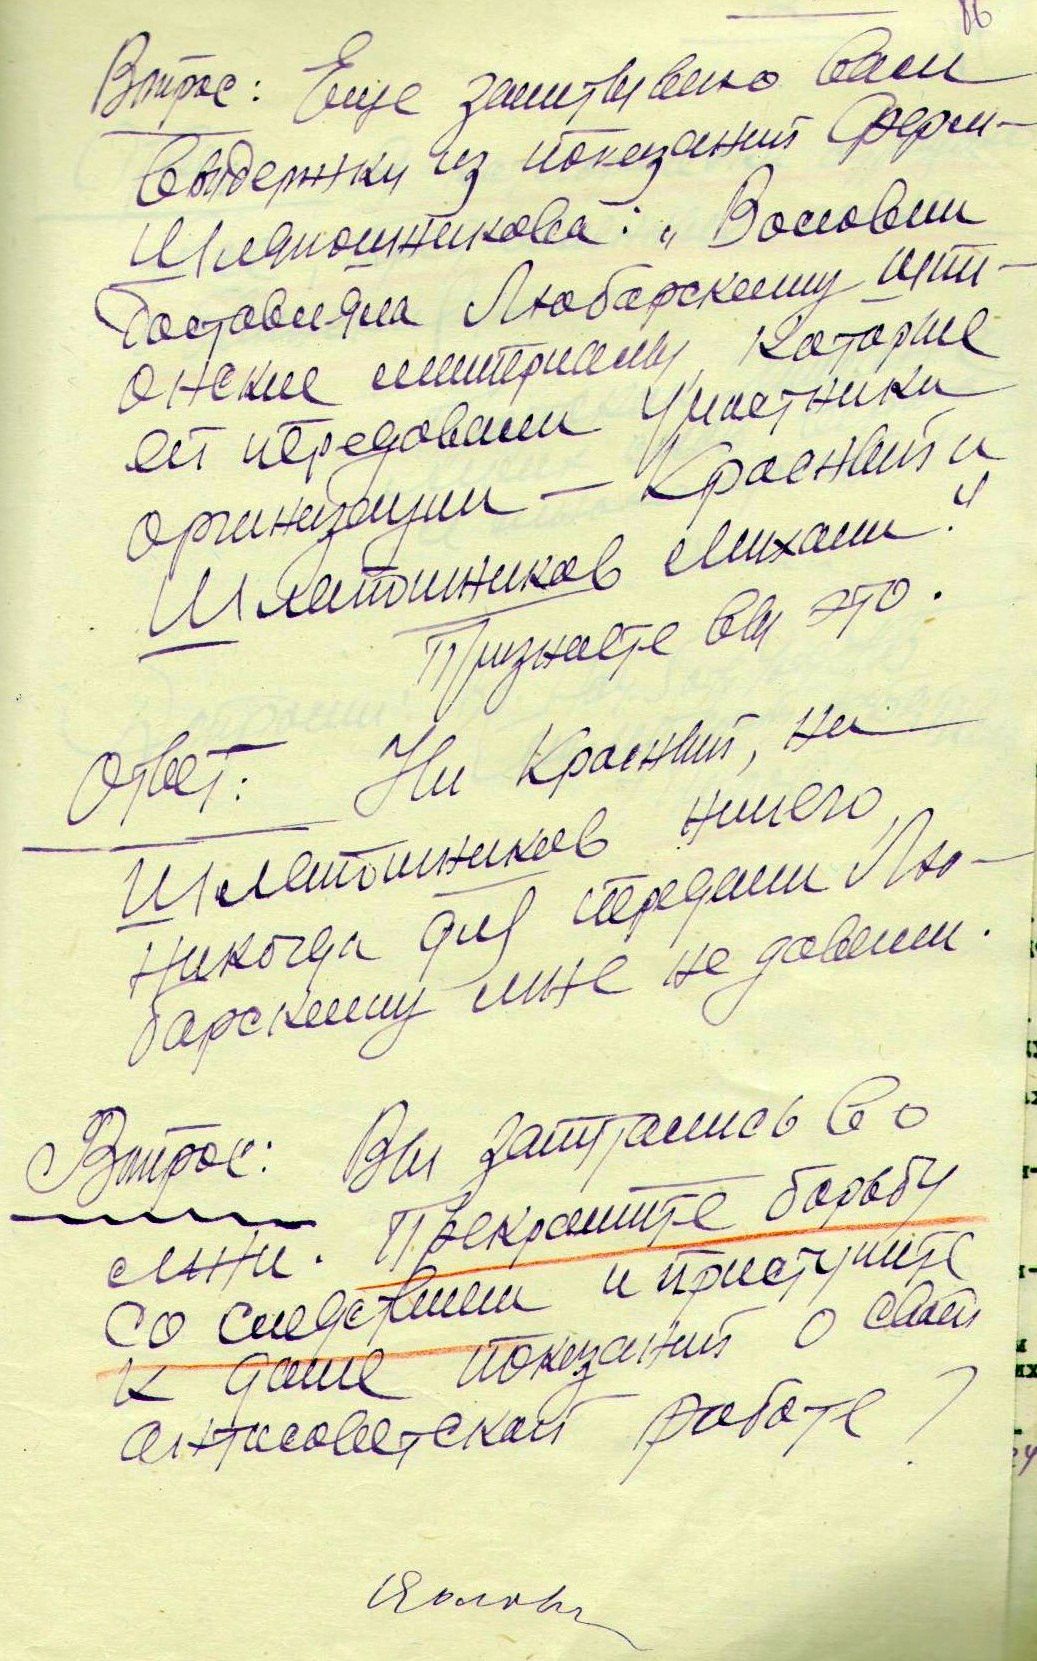 86
Вопрос: Еще зачитываю вам
выдержку из показаний
Шляпошникова: „
доставляла Любарскому шпи-
онские материалы, которые
ей передавали участники
организации — Красный и
Шляпошников Михаил."
Признаете вы это.
Ответ: Ни Красный, ни
Шляпошников ничего
никогда для передачи Лю-
барскому мне не давали.
Вопрос: Вы запутались во
лжи. Прекратите борьбу
со следствием и приступите
к даче показаний о своей
антисоветской работе?